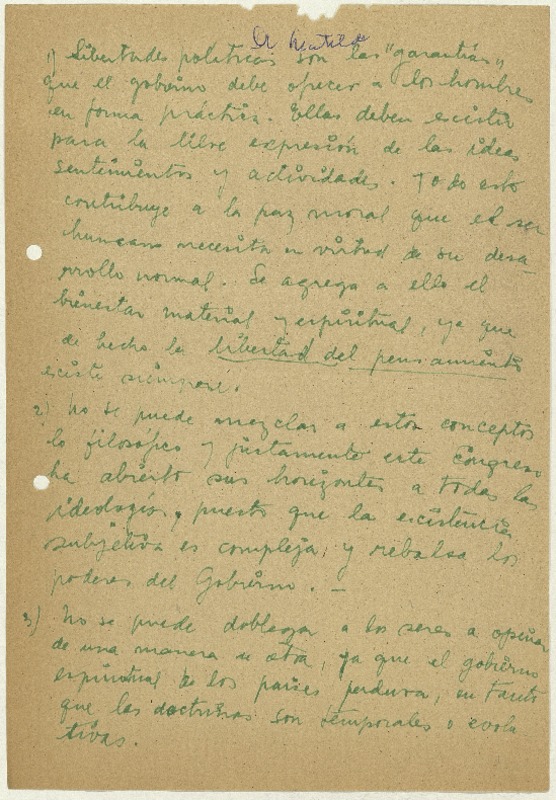 A Matilde
1) Libertades políticas son las "garantías",
que el gobierno debe ofrecer a los hombres
en forma práctica. Ellas deben escistir
para la libre expresión de las ideas
sentimientos y actividades. Todo esto
contribuye a la paz moral que el ser
humano necesita en virtud de su desa-
rrollo normal. Se agrega a ello el
bienestar material y espiritual, ya que
de hecho la libertad del pensamiento
esciste siempre.
2) No se puede mezclar a estos conceptos
lo filosófico y justamente este Congreso
ha abierto sus horizontes a todas las
ideologías, puesto que la escistencia
subjetiva es compleja, y rebalsa los
poderes del Gobierno. —
3) No se puede doblegar a los seres a opinar
de una manera u otra, ya que el gobierno
espiritual de los países perdura, en tanto
que las doctrinas son temporales o evolu
tivas.